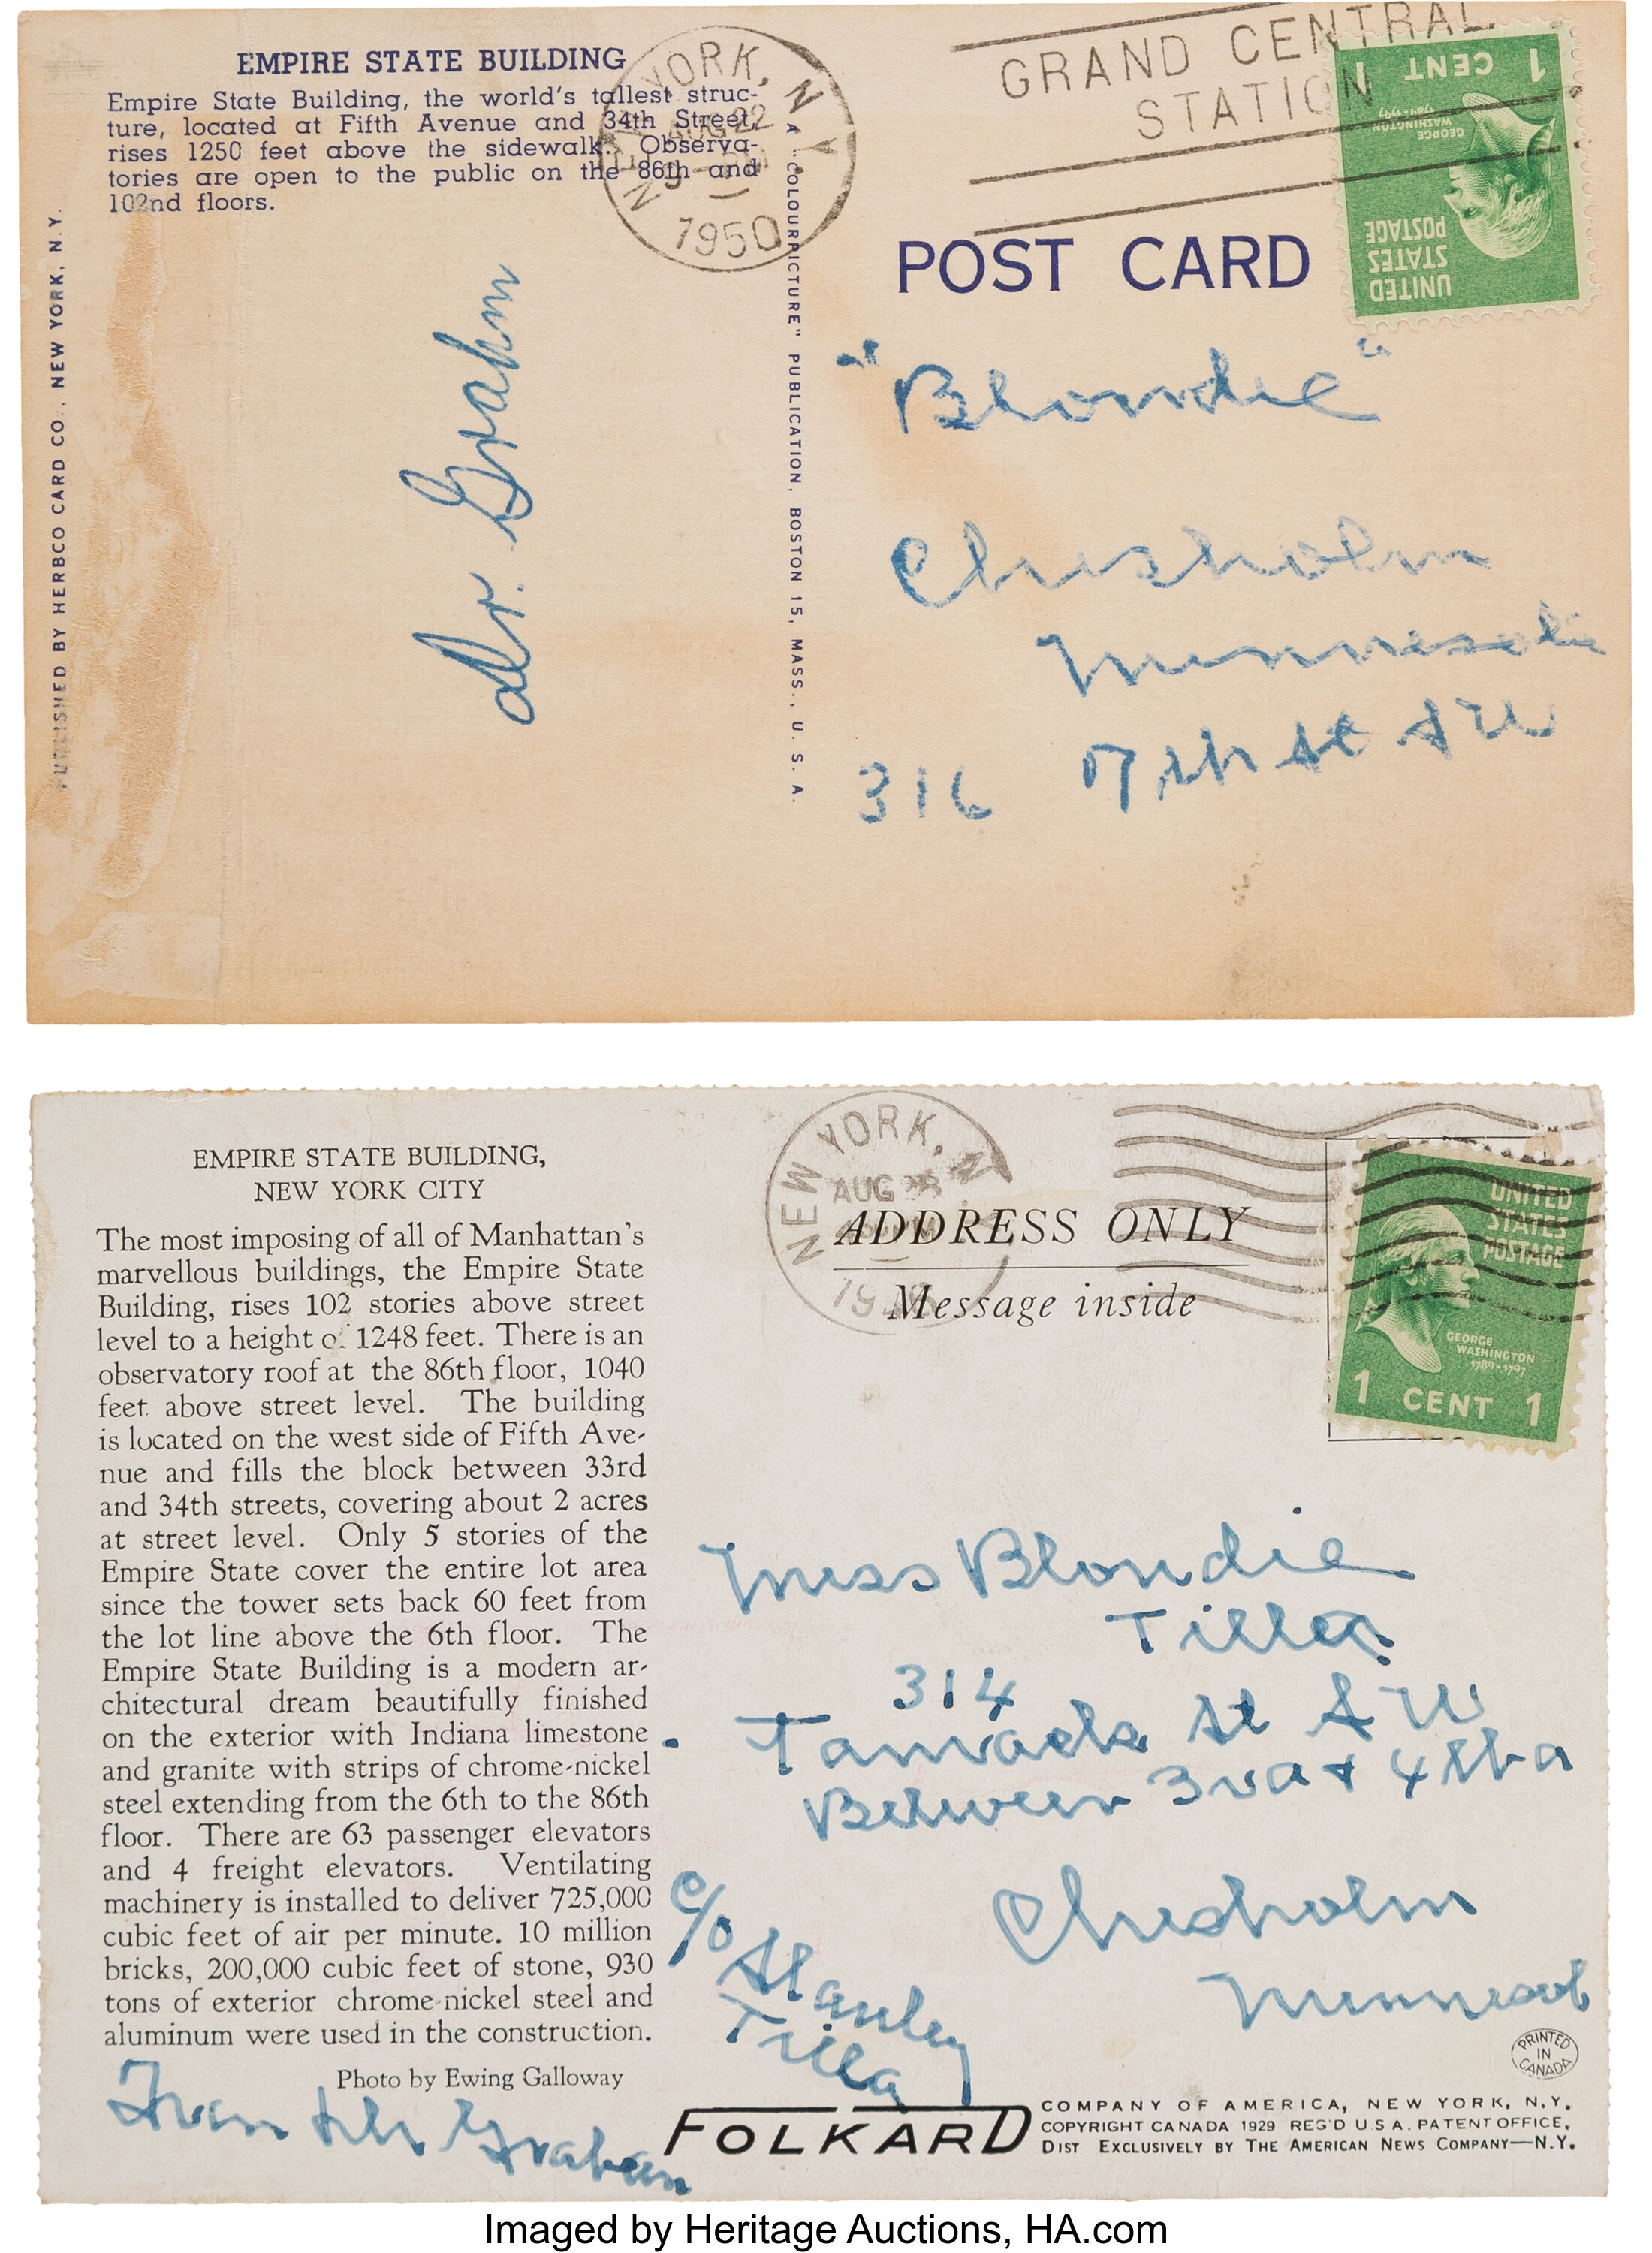 EMPIRE STATE BUILDING
Empire State Building, the world's tallest struc-
ture, located at Fifth Avenue and 34th Street,
rises 1250 feet above the sidewalk. Observa-
tories are open to the public on the 86th and
102nd floors.
NEW YORK, N.Y.
AUG 22
1950
GRAND CENTRAL
STATION
1 CENT 1
GEORGE
WASHINGTON
1789-1797
UNITED
STATES
POSTAGE
POST CARD
PUBLISHED BY HERBCO CARD CO., NEW YORK, N.Y.
Dr. Graham
A "COLOURPICTURE" PUBLICATION, BOSTON 15, MASS., U. S. A.
"Blondie"
Chisholm
Minnesota
316 7th St S W
EMPIRE STATE BUILDING,
NEW YORK CITY
The most imposing of all of Manhattan's
marvellous buildings, the Empire State
Building, rises 102 stories above street
level to a height of 1248 feet. There is an
observatory roof at the 86th floor, 1040
feet above street level. The building
is located on the west side of Fifth Ave-
nue and fills the block between 33rd
and 34th streets, covering about 2 acres
at street level. Only 5 stories of the
Empire State cover the entire lot area
since the tower sets back 60 feet from
the lot line above the 6th floor. The
Empire State Building is a modern ar-
chitectural dream beautifully finished
on the exterior with Indiana limestone
and granite with strips of chrome-nickel
steel extending from the 6th to the 86th
floor. There are 63 passenger elevators
and 4 freight elevators. Ventilating
machinery is installed to deliver 725,000
cubic feet of air per minute. 10 million
bricks, 200,000 cubic feet of stone, 930
tons of exterior chrome-nickel steel and
aluminum were used in the construction.
Photo by Ewing Galloway
From Dr Graham
NEW YORK, N
AUG
ADDRESS ONLY
Message inside
UNITED
STATES
POSTAGE
GEORGE
WASHINGTON
1789-1797
1 CENT 1
Miss Blondie
Tilla
314
Tamrack St S W
Between 3rd & 4th
Chisholm
Minnesot
c/o Stanley
Tilla
PRINTED
IN
CANADA
FOLKARD
COMPANY OF AMERICA, NEW YORK, N.Y.
COPYRIGHT CANADA 1929 REG'D U.S.A. PATENT OFFICE.
DIST EXCLUSIVELY BY THE AMERICAN NEWS COMPANY—N.Y.
Imaged by Heritage Auctions, HA.com